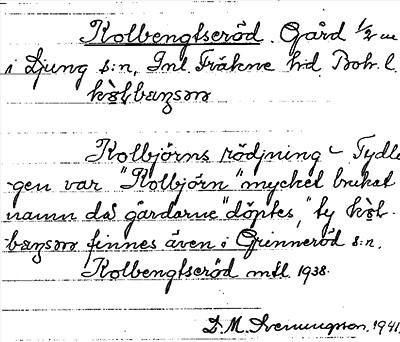 Kolbengtseröd. Gård 1/2 m
i Ljung s:n, Inl. Fräkne hd. Boh. l.
Kolbjörns rödjning – Tydli-
gen var "Kolbjörn" mycket brukat
namn då gårdarne "döptes," ty
finnes även i Grinneröd s:n.
Kolbengtseröd mtl. 1938.
D. M. 1941.